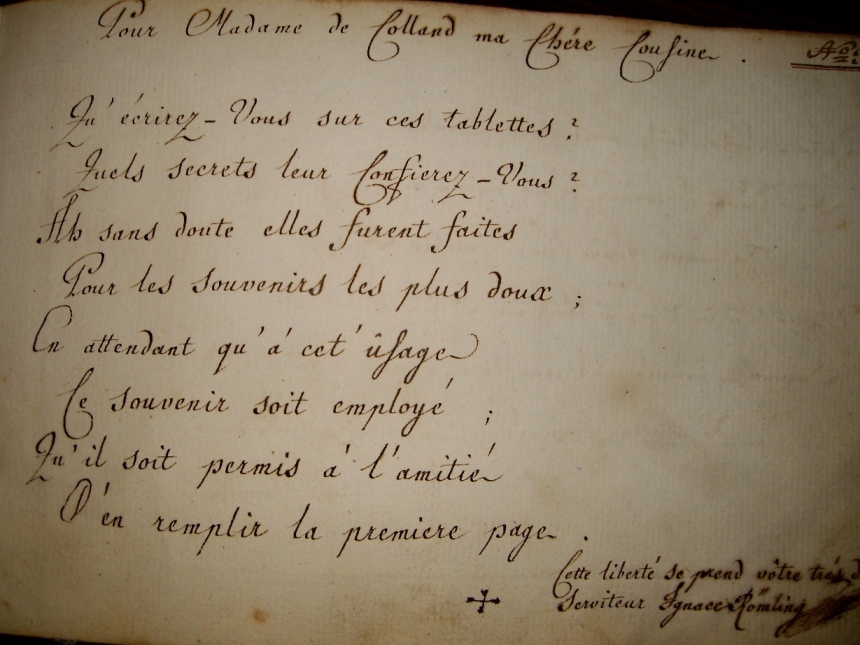 Pour Madame de Colland ma Chére Cousine.
Qu'écrirez-Vous sur ces tablettes?
Quels secrets leur Confierez-Vous?
Ah sans doute elles furent faites
Pour les souvenirs les plus doux;
En attendant qu'á cet' ûsage
Ce souvenir soit employé;
Qu'il soit permis á l'amitié
D'en remplir la premiere page.
Cette liberté se prend vôtre trés
Serviteur Ignace Römling